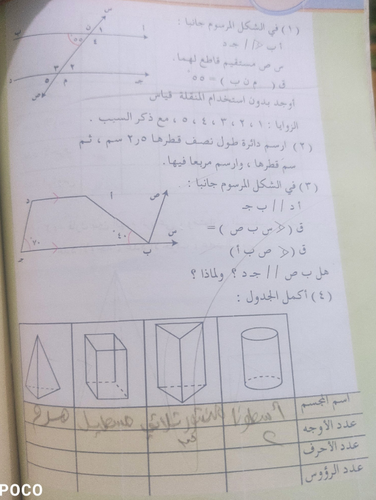 (١) في الشكل المرسوم جانبا :
أ ب // جـ د
س ص مستقيم قاطع لهما.
ق ( م ن ب ) = ٥٥°
أوجد بدون استخدام المنقلة قياس
الزوايا : ١ ، ٢ ، ٣ ، ٤ ، ٥ ، مع ذكر السبب .
(٢) ارسم دائرة طول نصف قطرها ٢٫٥ سم ، ثم
سم قطرها ، وارسم مربعا فيها.
(٣) في الشكل المرسوم جانبا :
أ د // ب جـ
ق (> س ب ص ) =
ق (> ص ب أ)
هل ب ص // جـ د ؟ ولماذا ؟
(٤) أكمل الجدول :
اسم المجسم
اسطوانة
منشور ثلاثي
مستطيل
هرم
عدد الأوجه
٢
عدد الأحرف
عدد الرؤوس
POCO